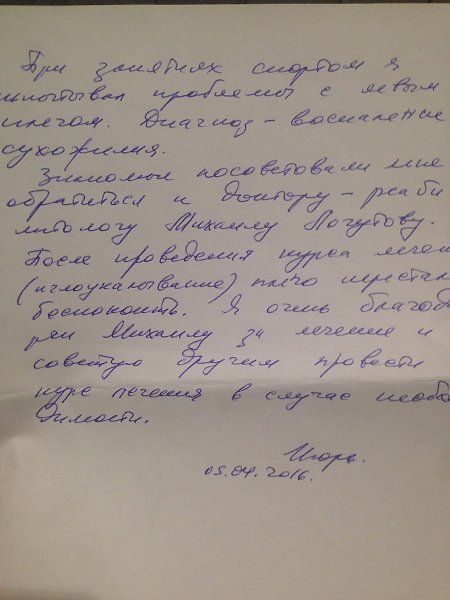 При занятиях спортом я
испытывал проблемы с левым
плечом. Диагноз - воспаление
сухожилия.
Знакомые посоветовали мне
обратиться к доктору - реаби
литологу Михаилу Почутову.
После проведения курса лечен
(иглоукалывание) плечо перестал
беспокоить. Я очень благода
рен Михаилу за лечение и
советую другим провести
курс лечения в случае необхо
димости.
Игорь.
05.04.2016.